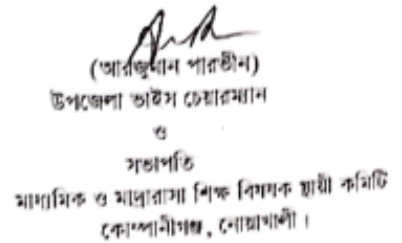 (আরজুমান পারভীন)
উপজেলা ভাইস চেয়ারম্যান
ও
সভাপতি
মাধ্যমিক ও মাদ্রারাসা শিক্ষ বিষয়ক স্থায়ী কমিটি
কোম্পানীগঞ্জ, নোয়াখালী।